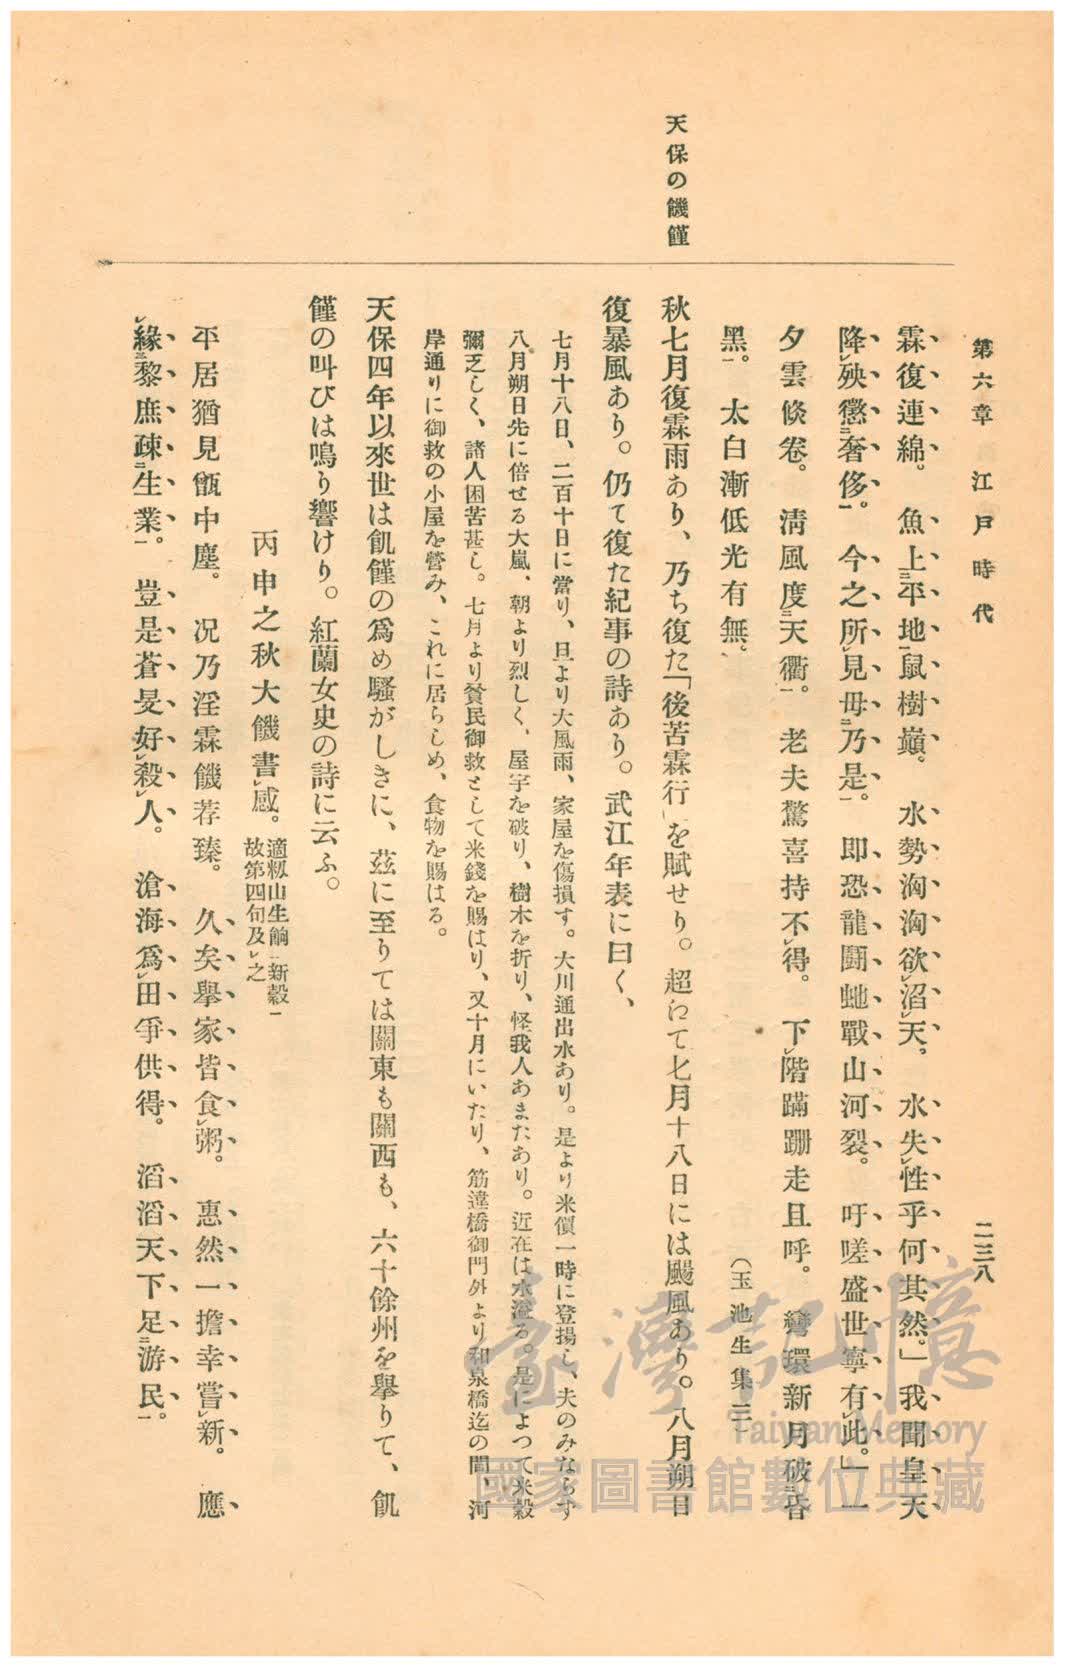 第六章 江戸時代
二三八
天保の饑饉
霖復連綿。魚上二平地一鼠樹巔。水勢洶洶欲レ滔天。水失レ性乎何其然。」我聞皇天
降レ殃懲二奢侈一。今之所レ見毋二乃是一。即恐龍鬪虵戰山河裂。吁嗟盛世寧有レ此。」一
夕雲倏卷。淸風度二天衢一。老夫驚喜持不レ得。下レ階蹣跚走且呼。彎環新月破二昏
黑一。太白漸低光有無。
(玉池生集三)
秋七月復霖雨あり、乃ち復た「後苦霖行」を賦せり。超にて七月十八日には颶風あり。八月朔日
復暴風あり。仍て復た紀事の詩あり。武江年表に曰く、
七月十八日、二百十日に當り、旦より大風雨、家屋を傷損す。大川通出水あり。是より米價一時に登揚し、夫のみならず
八月朔日先に倍せる大嵐、朝より烈しく、屋宇を破り、樹木を折り、怪我人あまたあり。近在は水溢る。是によつて米穀
彌乏しく、諸人困苦甚し。七月より貧民御救として米錢を賜はり、又十月にいたり、筋違橋御門外より和泉橋迄の間、河
岸通りに御救の小屋を營み、これに居らしめ、食物を賜はる。
天保四年以來世は飢饉の爲め騷がしきに、茲に至りては關東も關西も、六十餘州を擧りて、飢
饉の叫びは鳴り響けり。紅蘭女史の詩に云ふ。
丙申之秋大饑書レ感。適籾山生餉二新穀一
故第四句及レ之
平居猶見甑中塵。况乃淫霖饑荐臻。久矣擧家皆食レ粥。惠然一擔幸嘗レ新。應
レ緣三黎庶疎二生業一。豈是蒼旻好レ殺レ人。滄海爲レ田爭供得。滔滔天下足二游民一。
臺灣記憶
Taiwan Memory
國家圖書館數位典藏